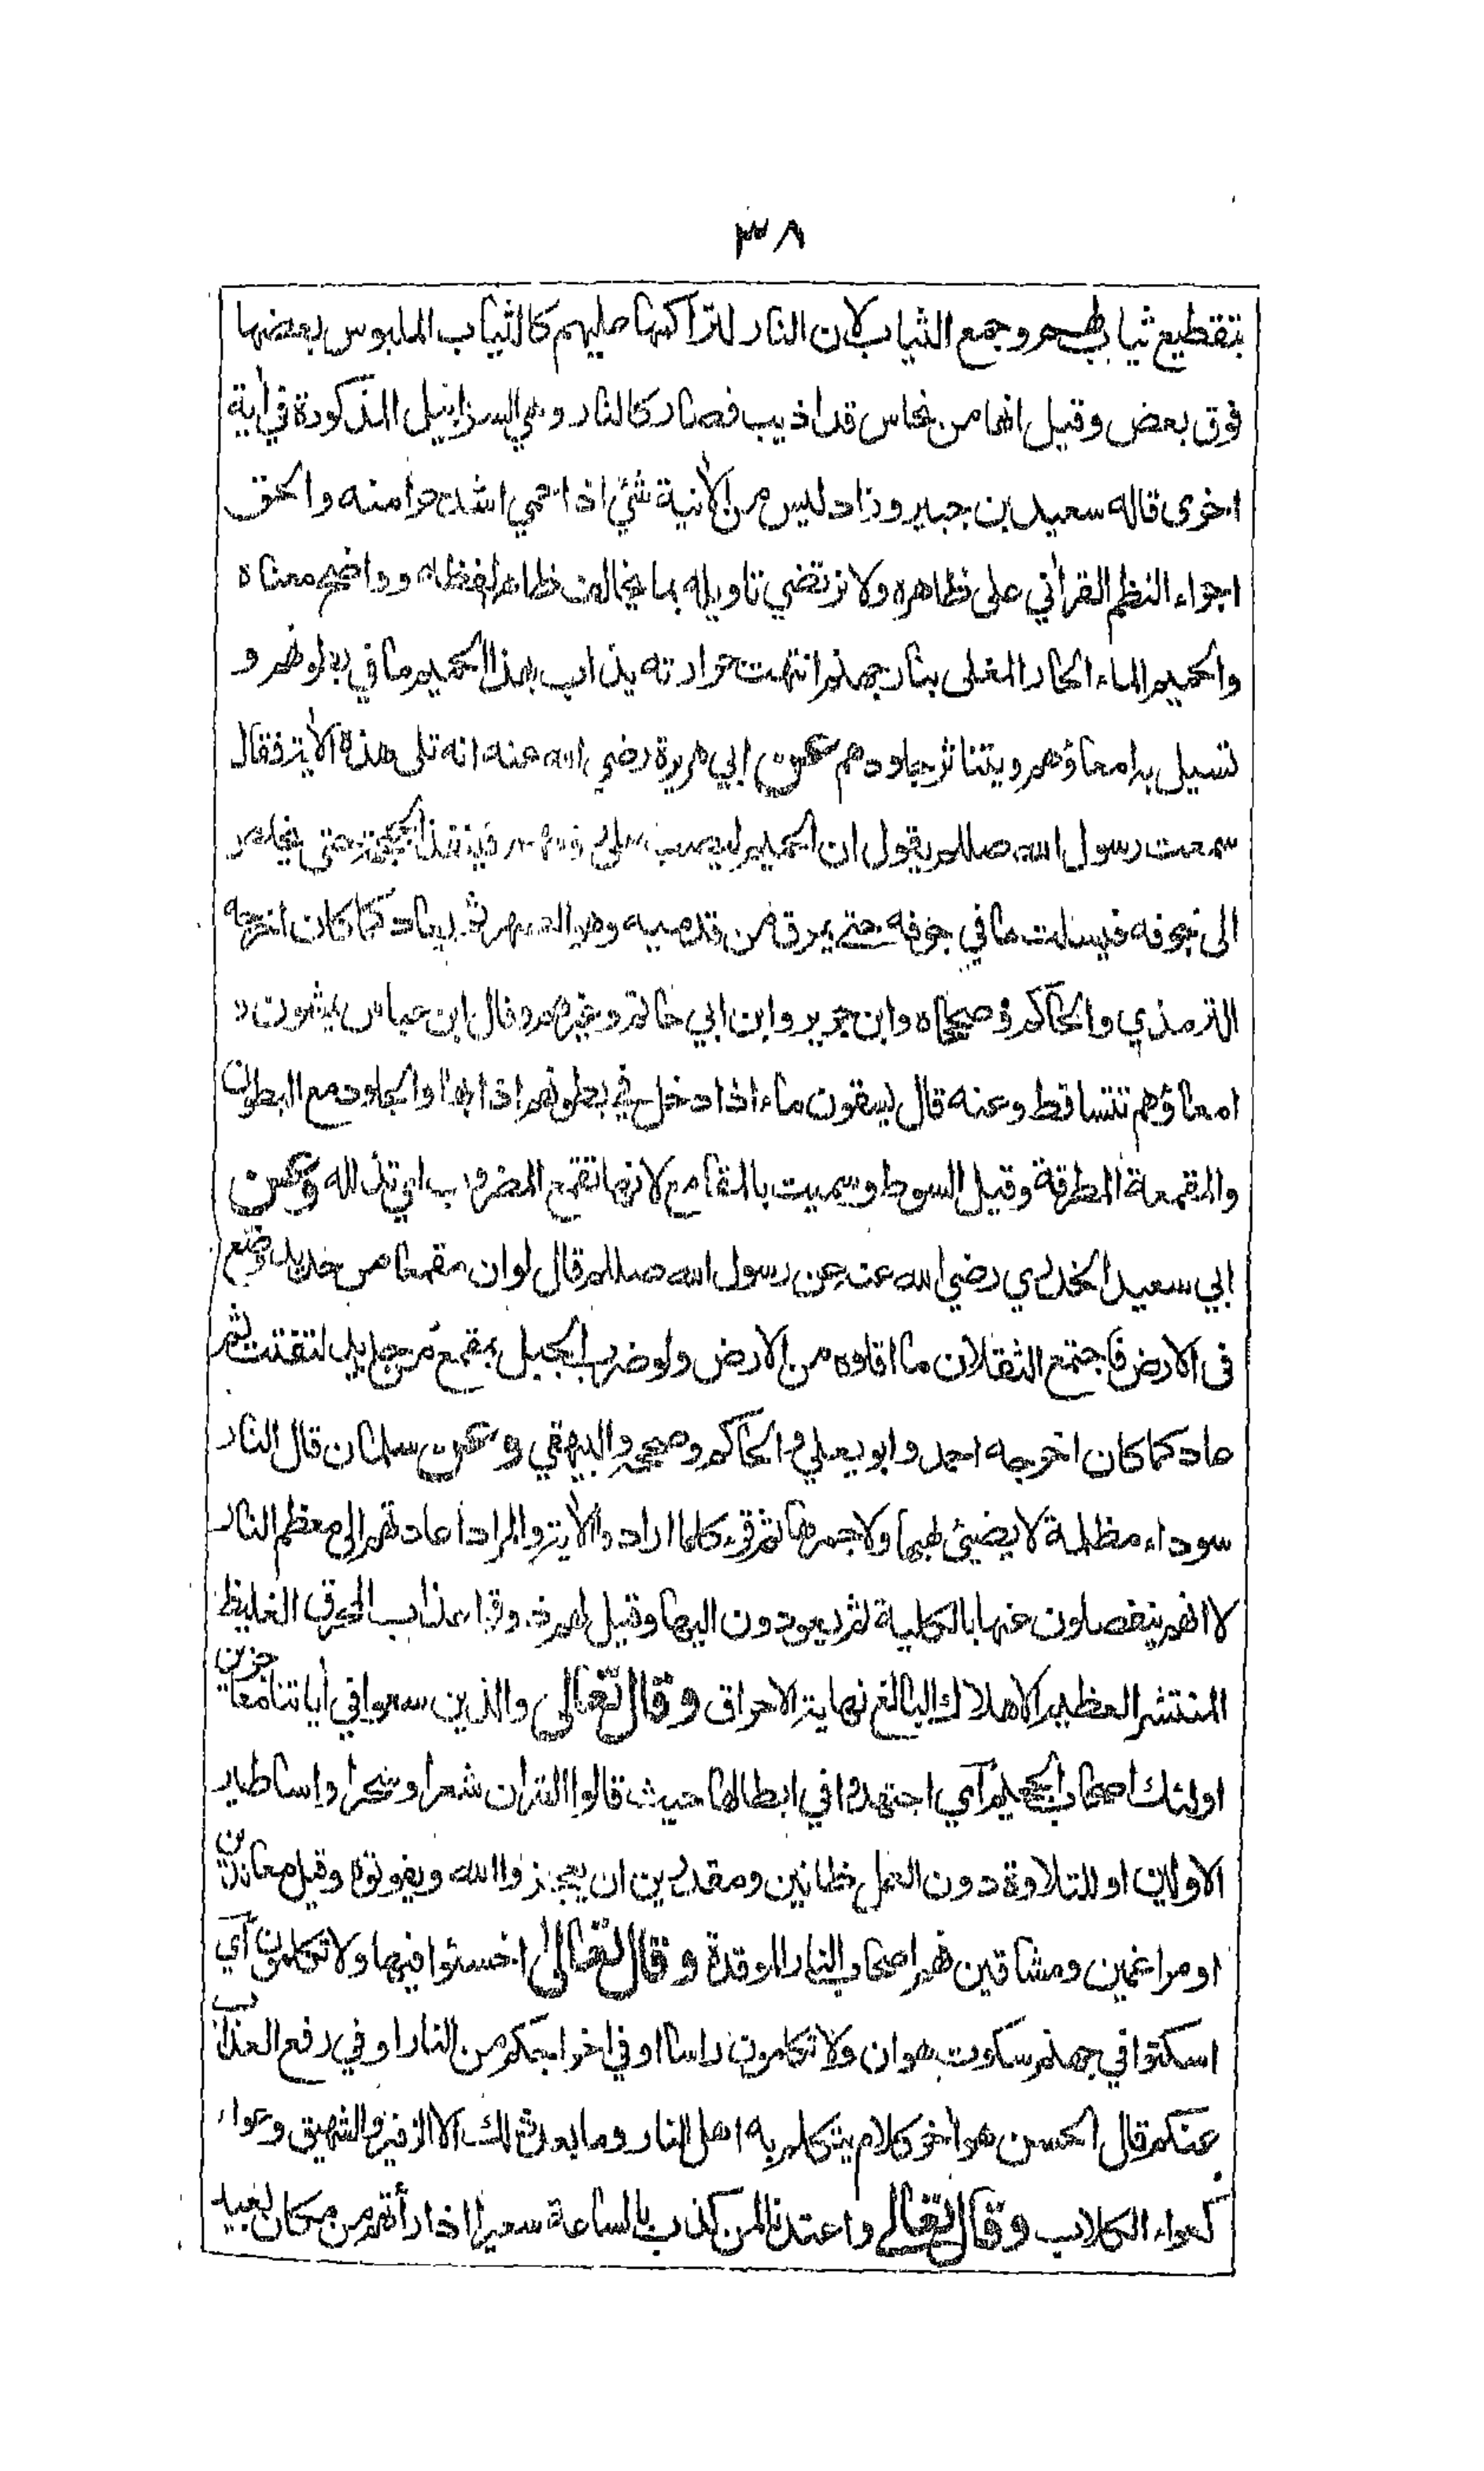 ٣٨
بتقطيع ثياب لهم وجمع الثياب لان النار لتراكمها عليهم كالثياب الملبوس بعضها
فوق بعض وقيل انها من نحاس قد اذيب فصار كالنار وهي السرابيل المذكورة في أية
اخرى قاله سعيد بن جبير وزاد ليس من الأنية شيئ اذا حمي اشد حرا منه والحق
اجراء النظم القرأني على ظاهره ولا نرتضي تاويله بما يخالف ظاهر لفظه وواضح معناه
والحميم الماء الحار المغلى بنار جهنم انتهت حرارته يذاب بهذا الحميم ما في بطونهم و
تسيل به امعاؤهم ويتناثر جلودهم عن ابي هريرة رضي الله عنه انه تلى هذه الأية فقال
سمعت رسول الله صللم يقول ان الحميم ليصب على رؤسهم فينفذ الجمجمة حتى يخلص
الى جوفه فيسلت ما في جوفه حتى يمرق من قدميه وهو الصهر ثم يعاد كما كان اخرجه
الترمذي والحاكم وصححاه وابن جرير وابن ابي حاتم وغيرهم وقال ابن عباس يمشون و
امعاؤهم تتساقط وعنه قال يسقون ماء اذا دخل في بطونهم اذابها والجلود مع البطون
والمقمعة المطرقة وقيل السوط وسميت بالمقامع لانها تقمع المضروب اي تذلله وعن
ابي سعيد الخدري رضي الله عنه عن رسول الله صللم قال لو ان مقمعا من حديد وضع
في الارض فاجتمع الثقلان ما اقلوه من الارض ولو ضرب الجبل بمقمع من حديد لتفتت ثم
عاد كما كان اخرجه احمد وابو يعلي والحاكم وصححه والبيهقي وعن سلمان قال النار
سوداء مظلمة لا يضيئ لهبها ولا جمرها ثم قرء كلما ارادوا الأية والمراد اعادتهم الى معظم النار
لا انهم ينفصلون عنها بالكلية ثم يعودون اليها وقيل لهم ذوقوا عذاب الحرق الغليظ
المنتشر العظيم الاهلاك البالغ نهاية الاحراق وقال تعالى والذين سعوا في أياتنا معاجزين
اولئك اصحاب الجحيم أي اجتهدوا في ابطالها حيث قالوا القران شعر او سحر او اساطير
الاولين او للتلاوة دون العمل ظانين ومقدرين ان يعجزوا الله ويفوتوه وقيل معاندين
او مراغمين ومشاقين فهم اصحاب النار الموقدة وقال تعالى اخسئوا فيها ولا تكلمون أي
اسكتوا في جهنم سكوت هوان ولا تكلمون راسا او في اخراجكم من النار او في رفع العذاب
عنكم قال الحسن هو أخر كلام يتكلم به اهل النار وما بعد ذالك الا الزفير والشهيق وعواء
كعواء الكلاب وقال تعالى واعتدنا لمن كذب بالساعة سعيرا اذا رأتهم من مكان بعيد